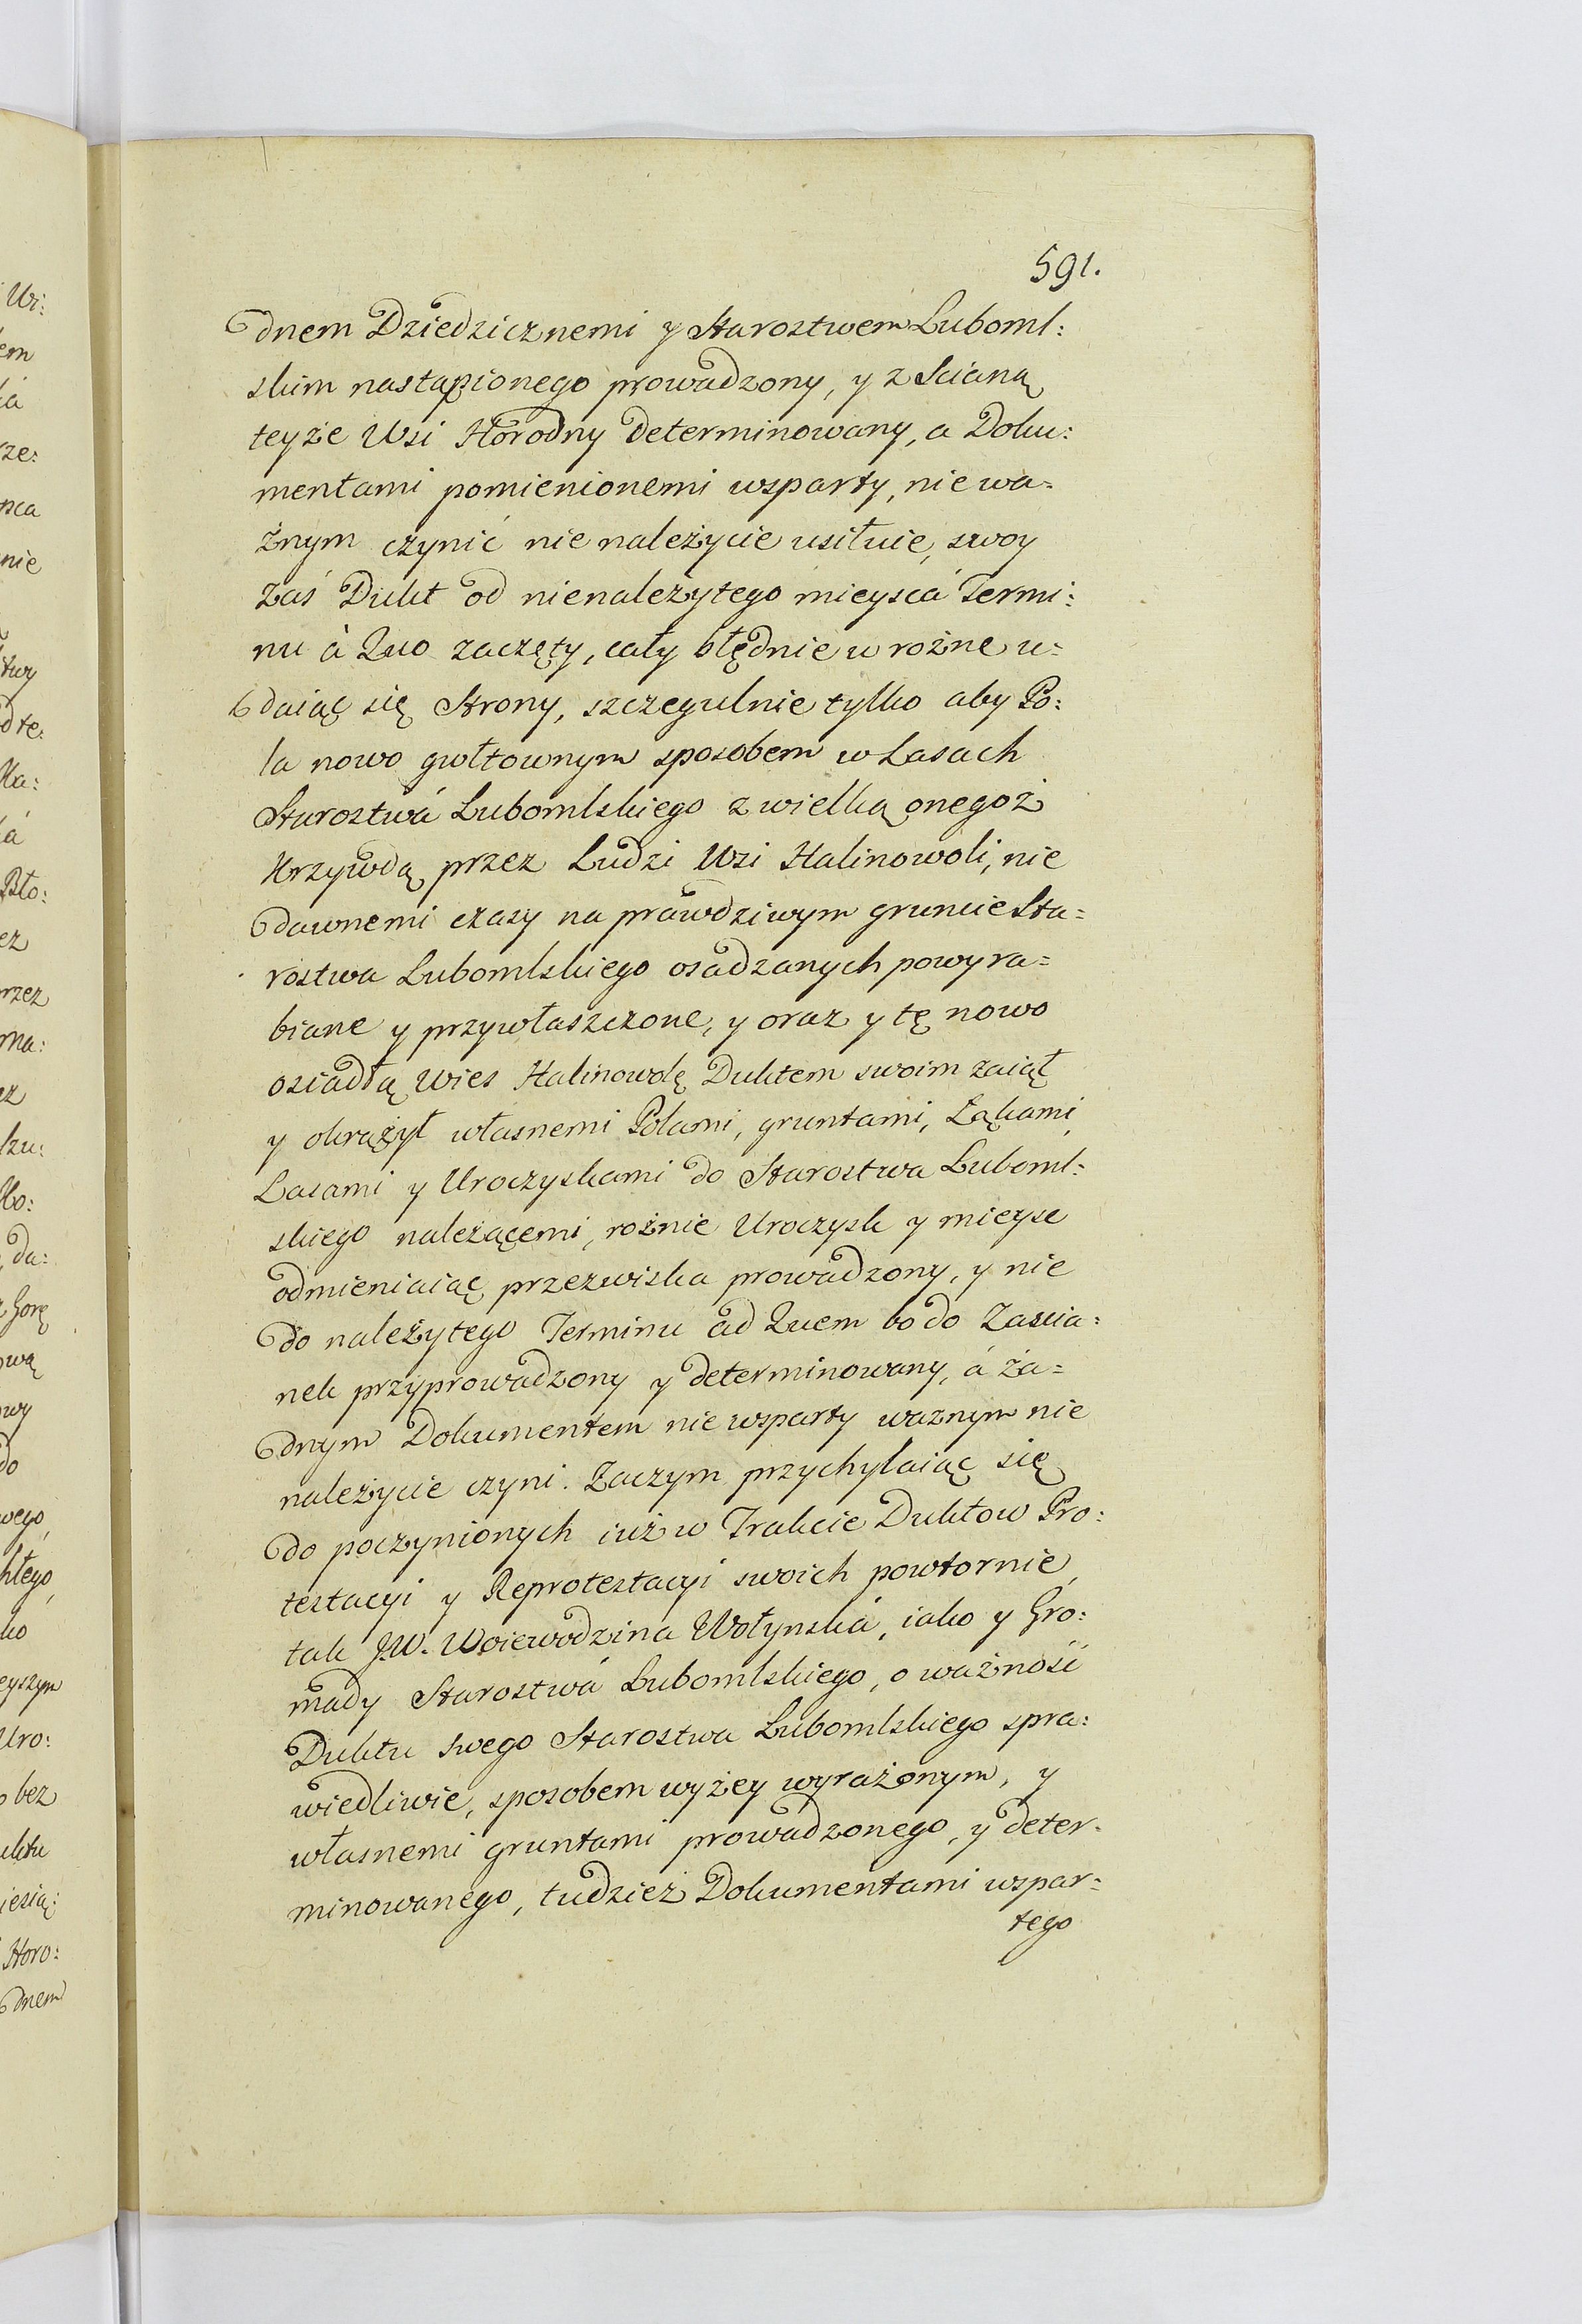 591.
dnem Dziedzicznemi y Starostwem Luboml:
skim nastąpionego prowadzony, y z Scianą
teyże Wsi Horodny determinowany, a Doku:
mentami pomienionemi wsparty, nie wa=
żnym czynić nie należycie usiłuie, swoy
zaś Dukt od nienależytego mieysca Termi:
nu à Quo zaczęty, cały błędnie w rożne u=
daiąc się Strony, szczegulnie tylko aby Po:
la nowo gwłtownym sposobem w Lasach
Starostwá Lubomlskiego z wielką onegoż
Krzywdą przez Ludzi Wsi Halinowoli, nie
dawnemi czasy na prawdziwym gruncie Sta=
rostwa Lubomlskiego osadzanych powyra=
biane y przywłaszczone, y oraz y tę nowo
osiadłą Wies Halinowolę Duktem swoim zaiął
y okrążył własnemi Polami, gruntami, Łąkami,
Lasami y Uroczyskami do Starostwa Luboml:
skiego należącemi, rożnie Uroczysk y mieysc
odmieniaiąc przezwiska prowadzony, y nie
do należytego Terminu ad Quem bo do Zascia:
nek przyprowadzony y determinowany, á ża=
dnym Dokumentem nie wsparty ważnym nie
należycie czyni. Zaczym przychylaiąc się
do poczynionych iuż w Trakcie Duktow Pro:
testacyi y Reprotestacyi swoich powtornie,
tak J.W. Woiewodzina Wołynská, iako y Gro:
mady Starostwá Lubomlskiego, o ważność
Duktu swego Starostwa Lubomlskiego spra:
wiedliwie, sposobem wyżey wyrażonym, y
własnemi gruntami prowadzonego, y deter=
minowanego, tudzież Dokumentami wspar=
tego